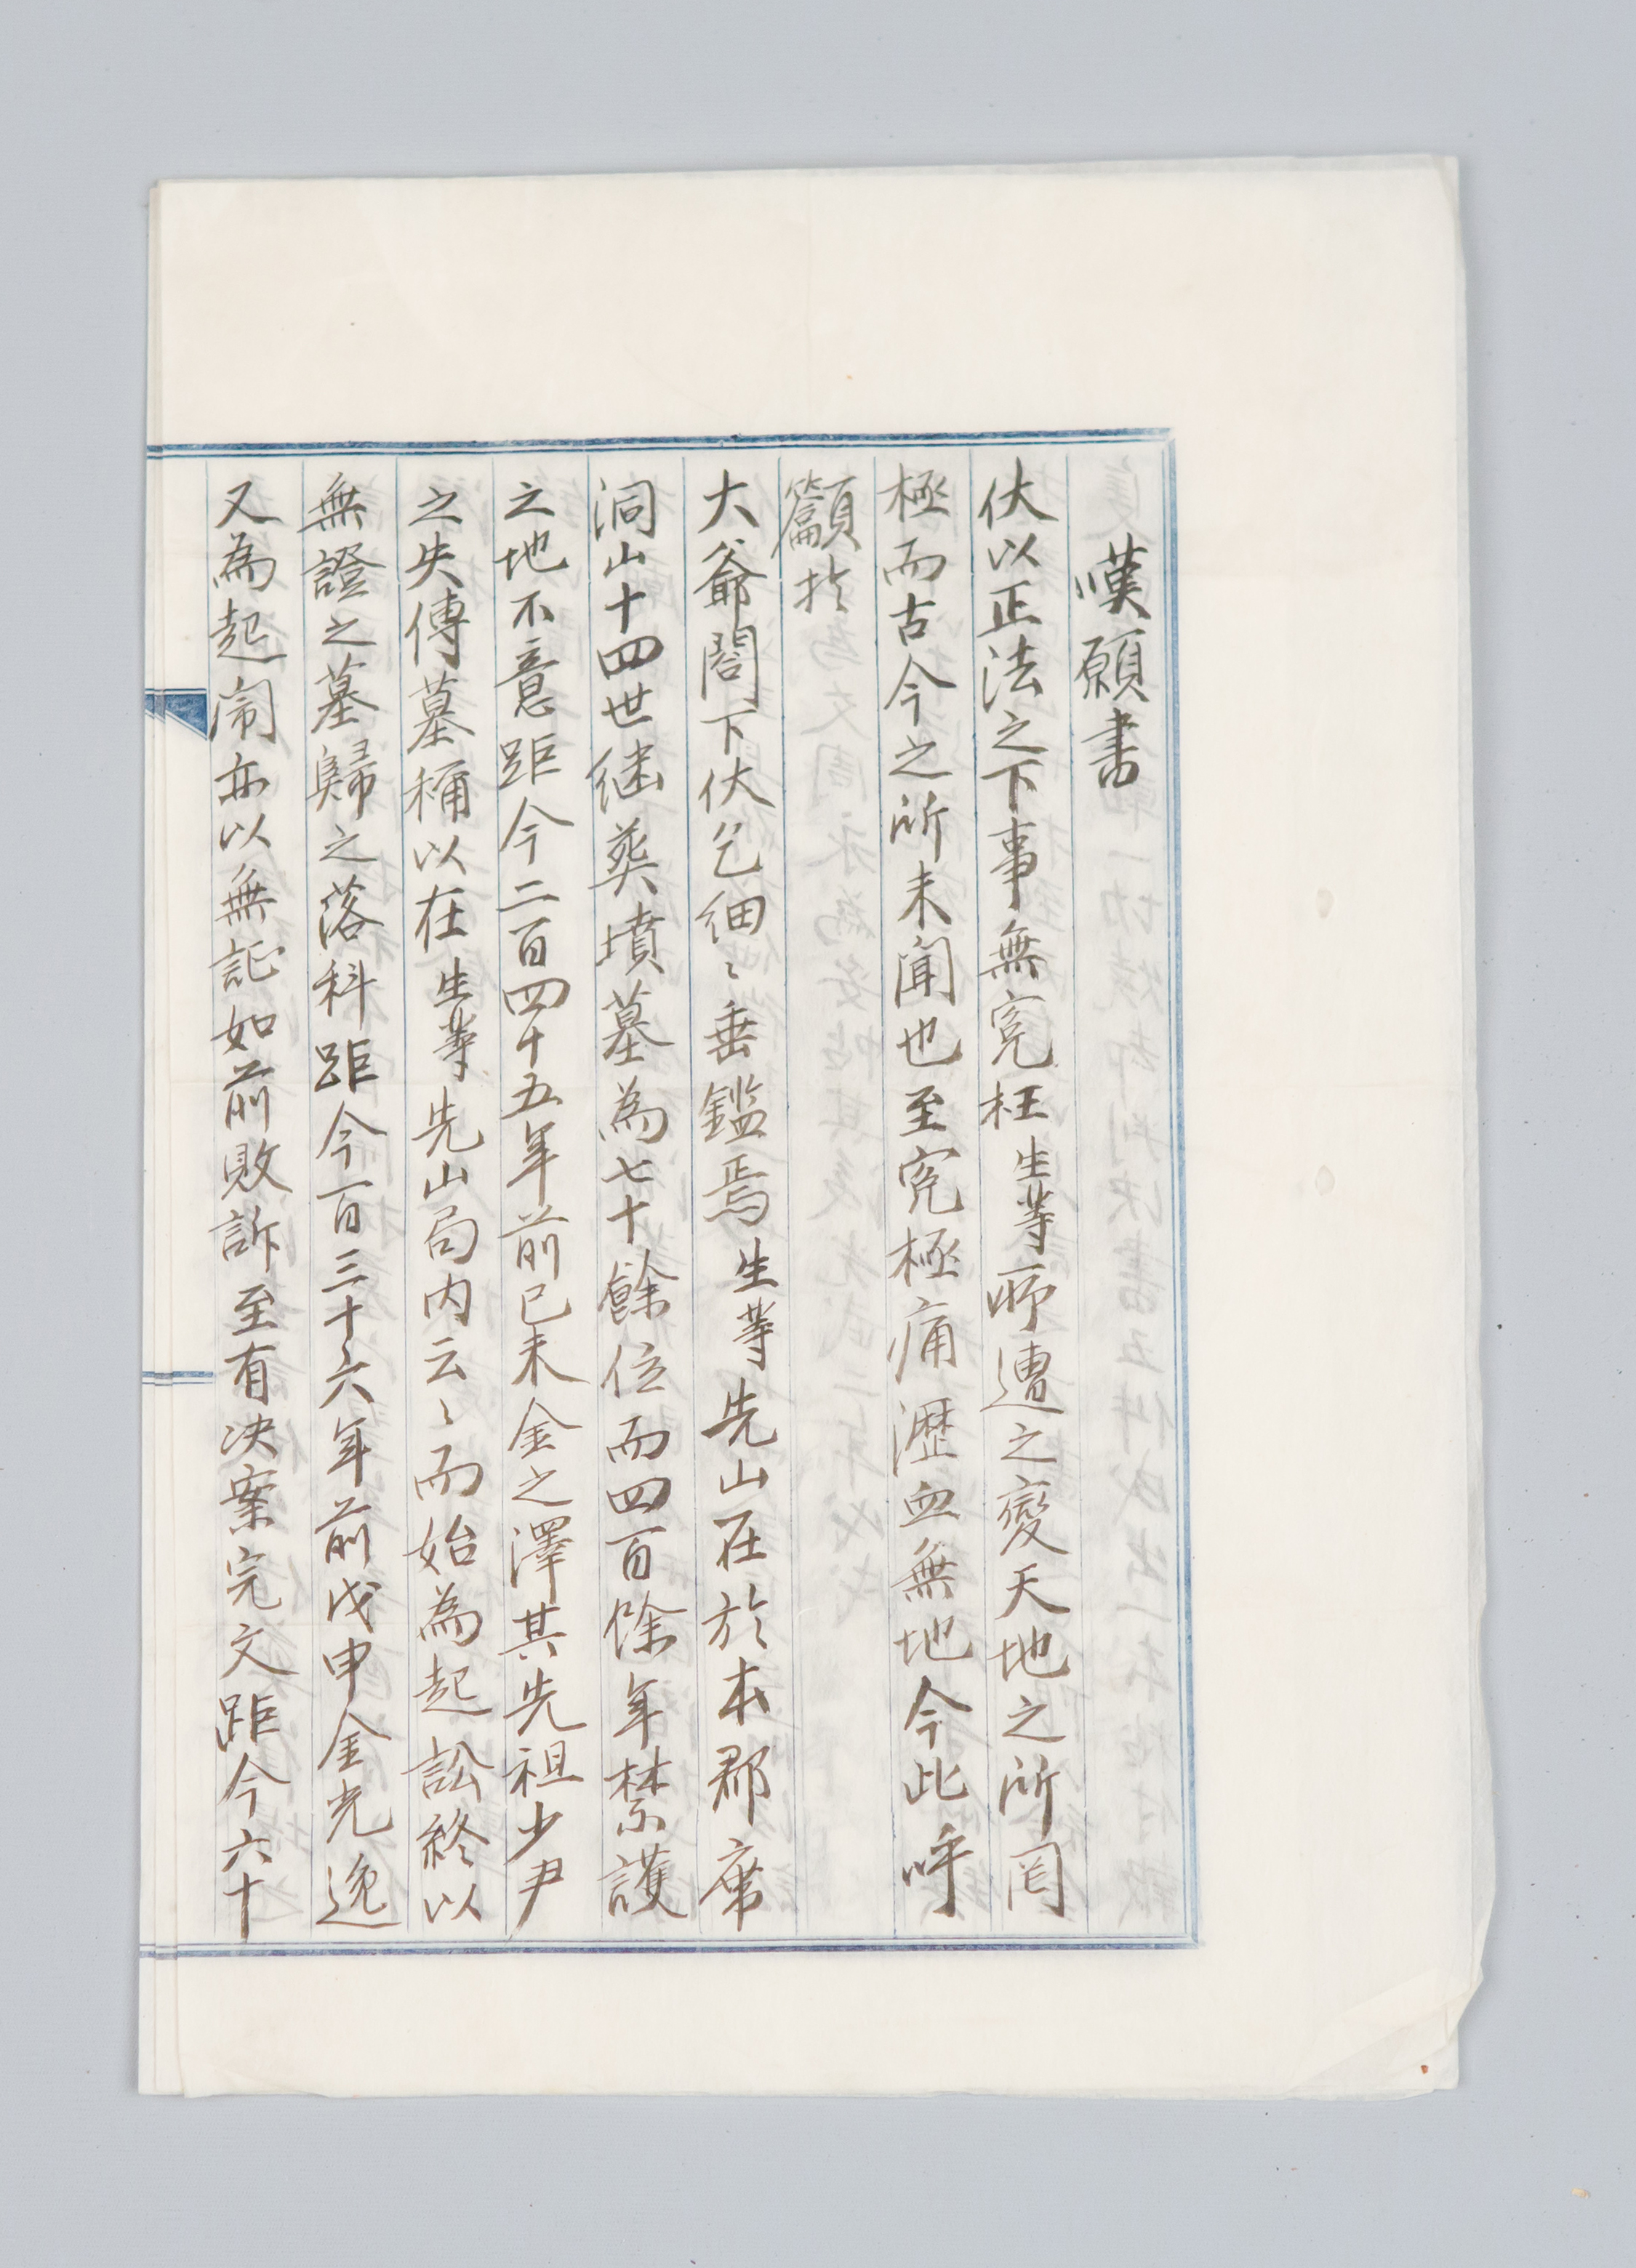 嘆願書
伏以正法之下事無寃枉生等所遭之變天地之所罔
極而古今之所未聞也至寃極痛瀝血無地今此呼
籲於
大爺閤下伏乞細〻垂鑑焉生等先山在於本郡席
洞山十四世継葬墳墓為七十餘位而四百餘年禁護
之地不意距今二百四十五年前己未金之澤其先祖少尹
之失傳墓稱以在生等先山局内云〻而始為起訟終以
無證之墓歸之落科距今百三十六年前戊申金光逸
又為起鬧亦以無証如前敗訴至有决案完文距今六十